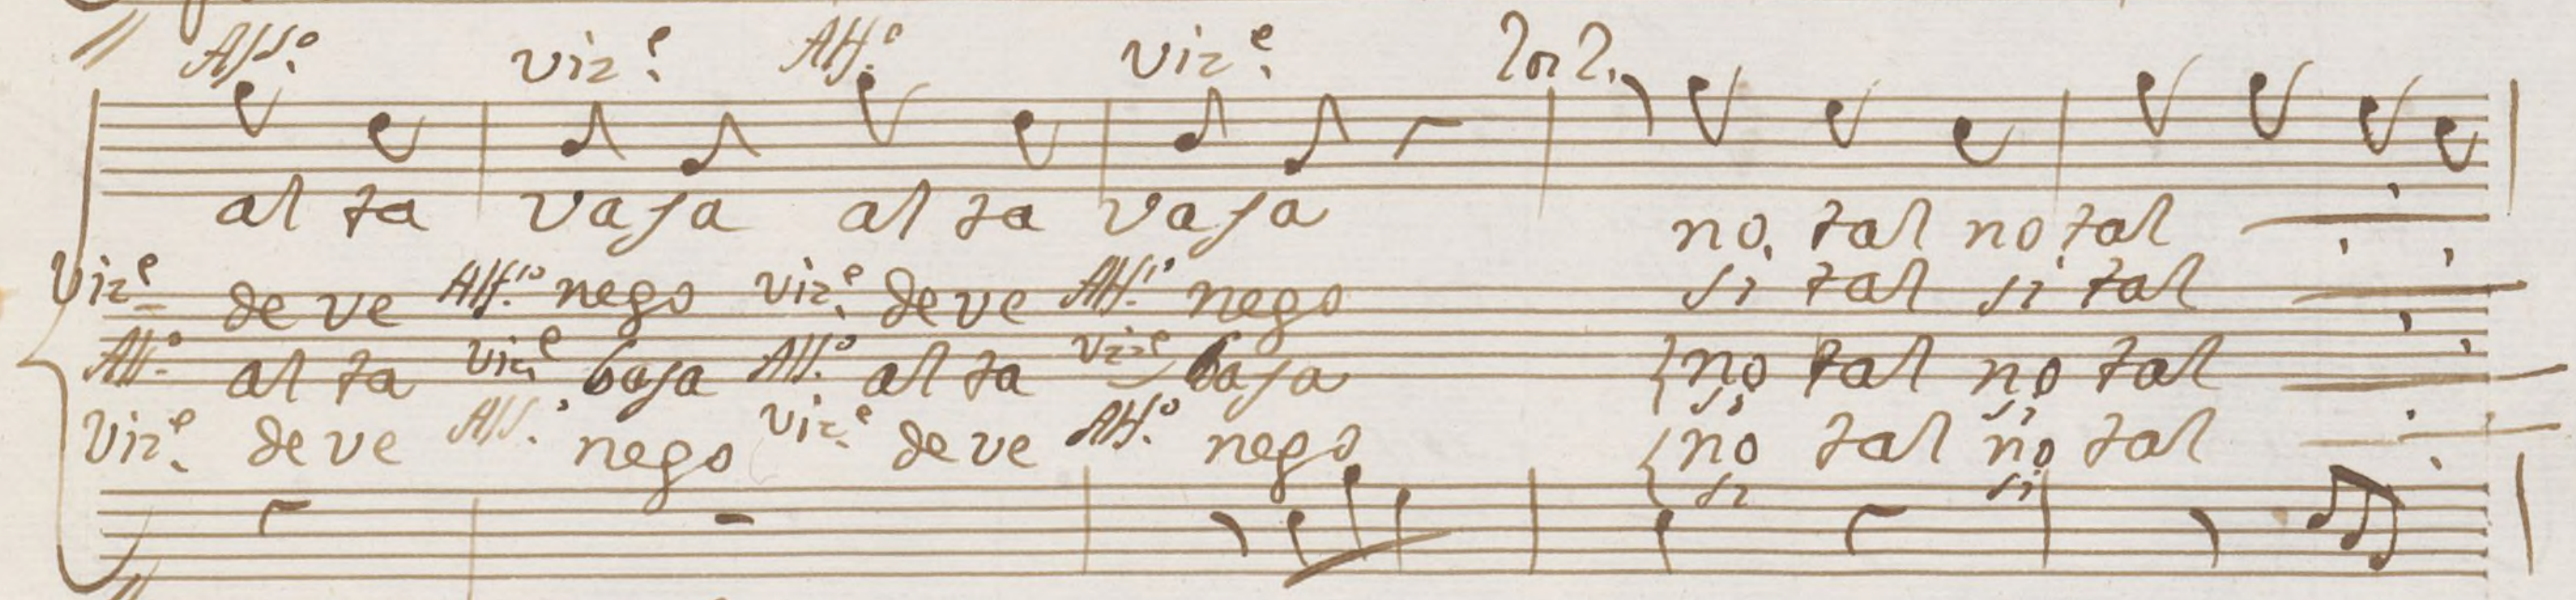 Alf.º viz.e Alf.º viz.e Los 2.
al ta vasa al ta vasa no, tal no tal
Viz.e de ve Alf.º nego viz.e deve Alf.º nego si tal si tal
Alf.º al ta viz.e basa Alf.º al ta viz.e basa no tal no tal
si si
Viz.e de ve Alf.º nego viz.e deve Alf.º nego no tal no tal
si si